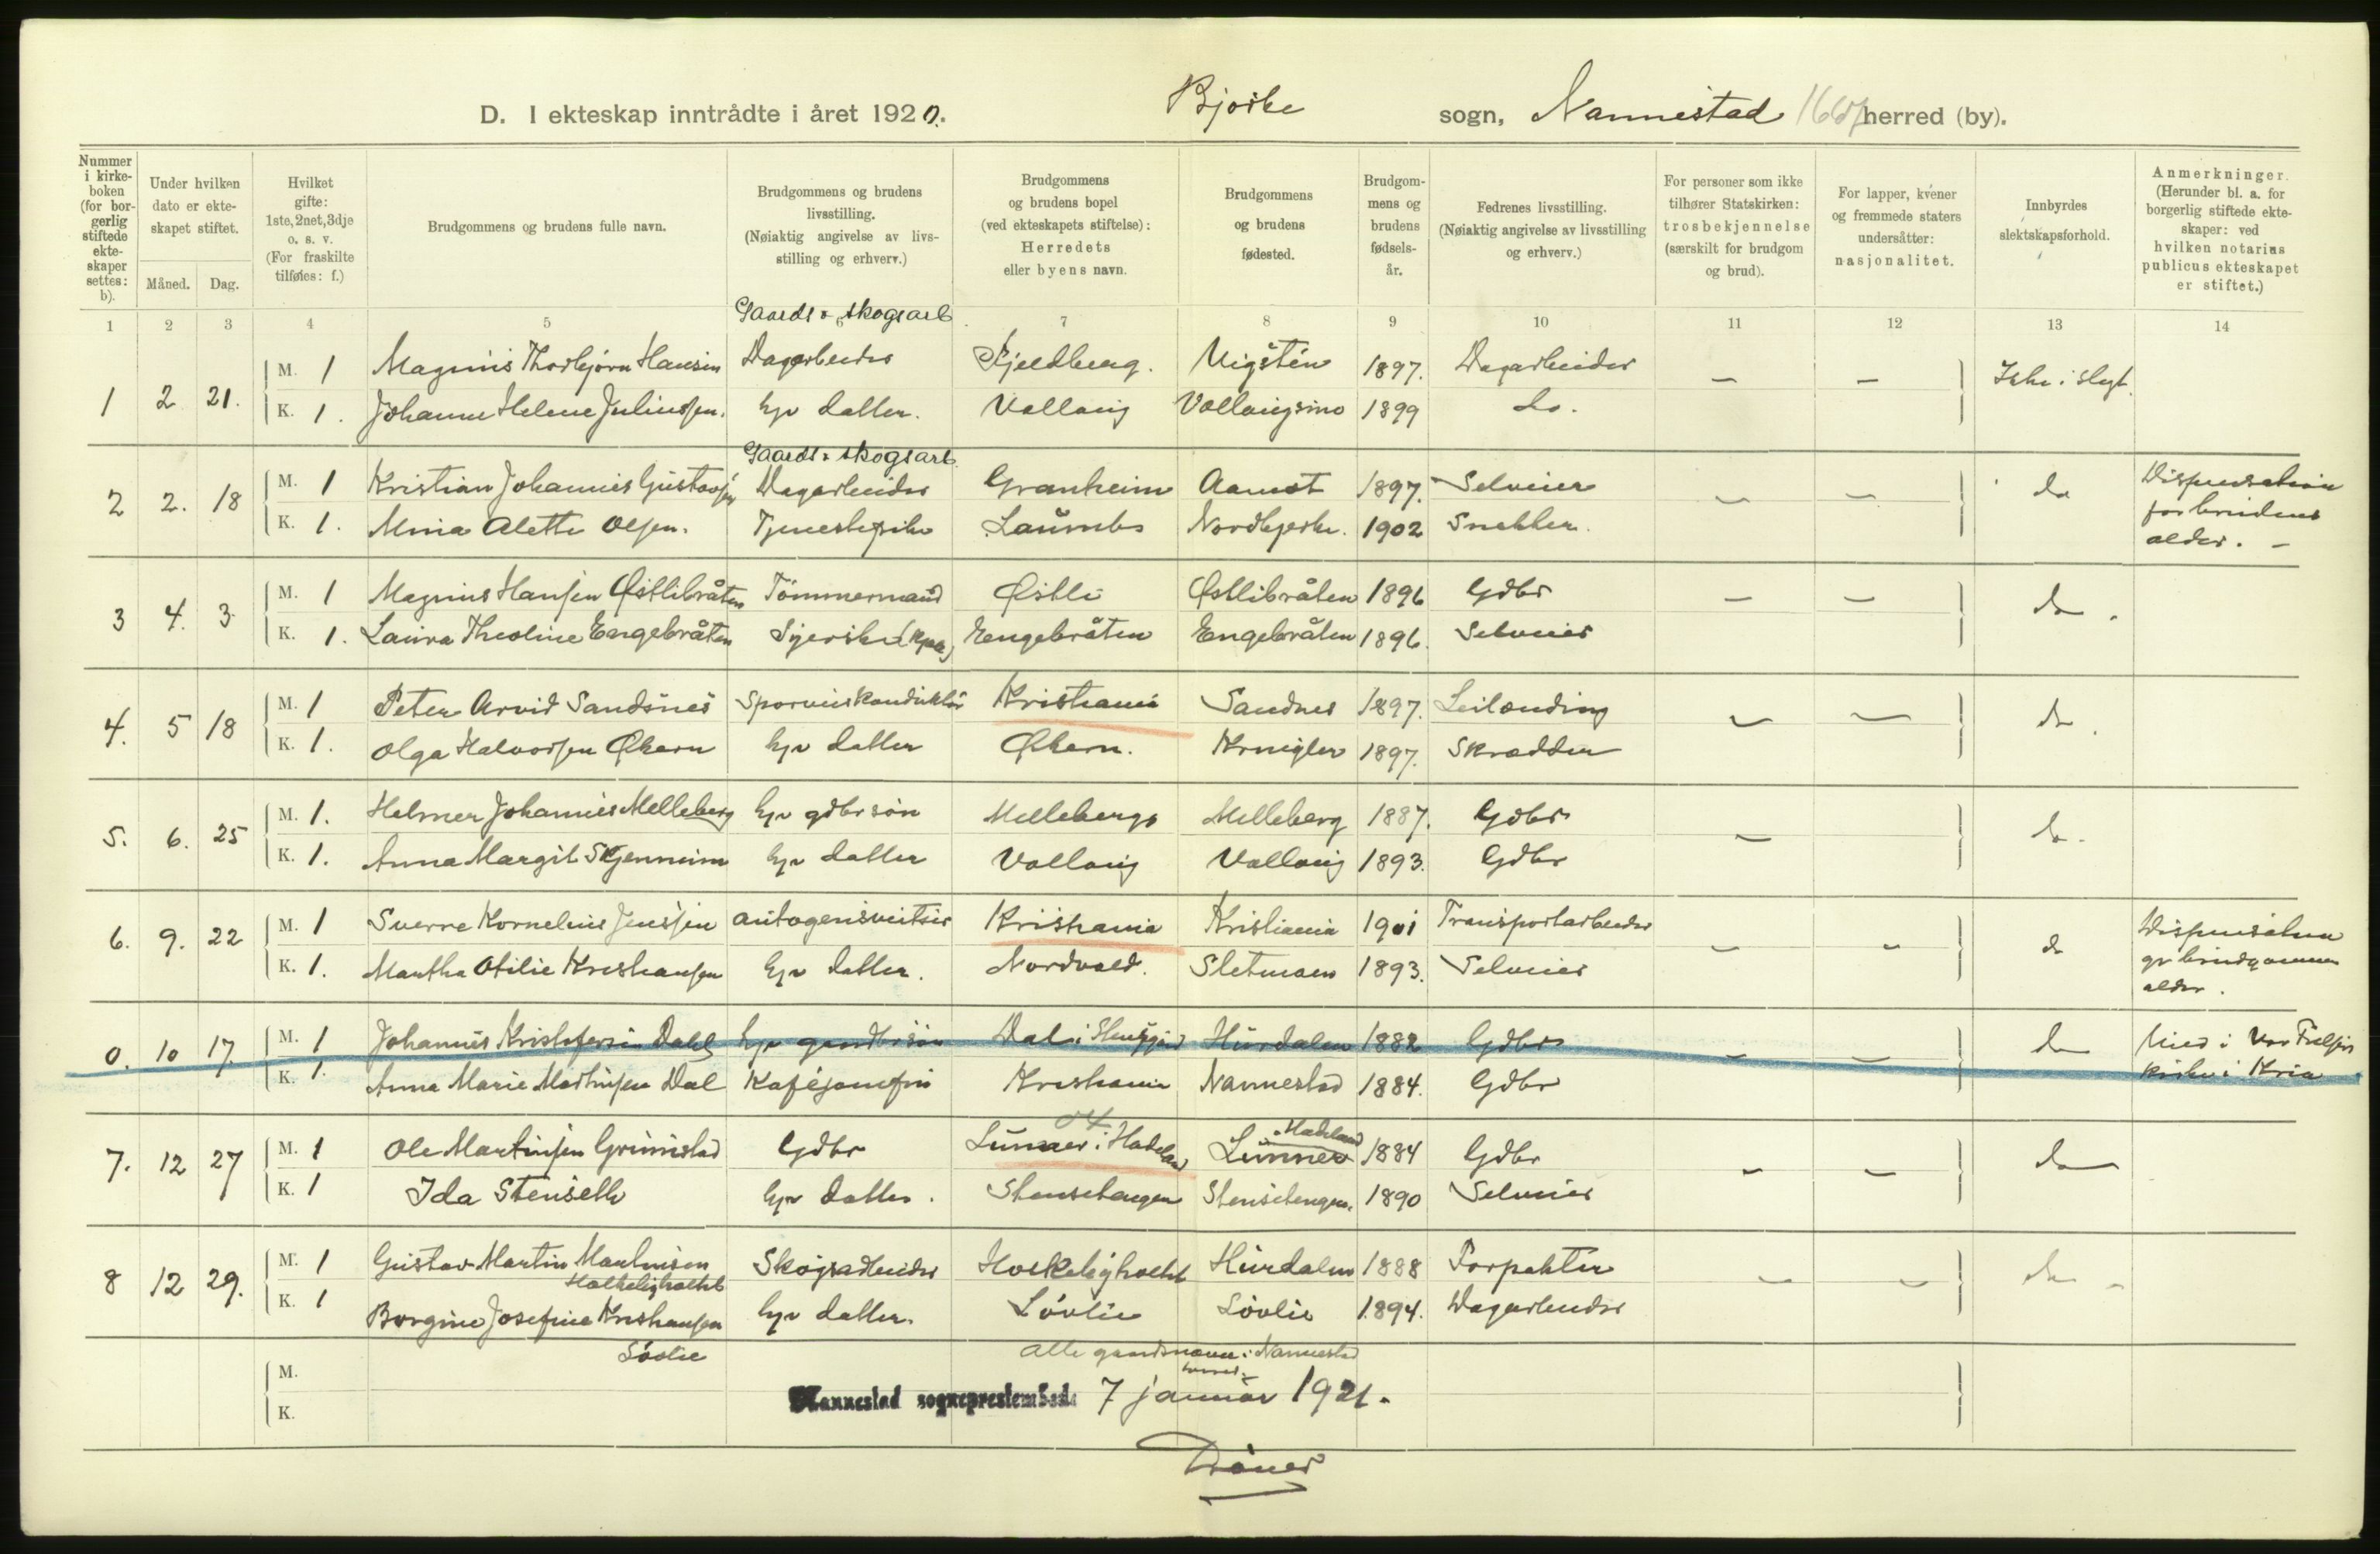 D. I ekteskap inntrådte i året 1920. Bjerke sogn, Nannestad herred (by).
Nummer i kirkeboken (for borgerlig stiftede ekteskaper settes: b).
Under hvilken dato er ekteskapet stiftet.
Måned. Dag.
Hvilket gifte: 1ste, 2net, 3dje o. s. v. (For fraskilte tilføies: f.)
Brudgommens og brudens fulle navn.
Brudgommens og brudens livsstilling. (Nøiaktig angivelse av livsstilling og erhverv.)
Brudgommens og brudens bopel (ved ekteskapets stiftelse): Herredets eller byens navn.
Brudgommens og brudens fødested.
Brudgommens og brudens fødselsår.
Fedrenes livsstilling. (Nøiaktig angivelse av livsstilling og erhverv.)
For personer som ikke tilhører Statskirken: trosbekjennelse (særskilt for brudgom og brud).
For lapper, kvener og fremmede staters undersåtter: nasjonalitet.
Innbyrdes slektskapsforhold.
Anmerkninger. (Herunder bl. a. for borgerlig stiftede ekteskaper: ved hvilken notarius publicus ekteskapet er stiftet.)
1 2 3 4 5 6 7 8 9 10 11 12 13 14
Gaards & skogsarb
1 2 21. M. 1 Magnus Thorbjørn Hansen Dagarbeider Kjeldberg. Vigstein 1897. Dagarbeider — — Ikke i slegt.
K. 1. Johanne Helene Juliussen. hjv datter. Vollaug 1899 do.
Gaards & skogsarb.
2 2. 18 M. 1 Kristian Johannes Gustavsen Dagarbeider Granheim Aamot 1897. Selveier — — do Dispensation
for brudens
K. 1. Mina Alette Olsen. Tjenestepike Laumbs Nordbjerke. 1902 Snekker.
alder. —
3 4. 3. M. 1 Magnus Hansen Østlibråten Tømmermand Østli Østlibråten 1896 Gdbr — — do.
K. 1. Laura Theoline Engebråten Syerske Engebråten Engebråten 1896. Selveier
4. 5 18 M. 1 Peter Arvid Sandsnes Sporveiskonduktør Kristiania Sandnes 1897. Leilending — — do.
K. 1. Olga Halvorsen Økern hjv datter Økern. Krugler 1897. Skrædder
5. 6. 25 M. 1. Helmer Johannes Melleberg hjv gdbrsøn Melleberg Melleberg 1887. Gdbr — do.
K. 1. Anna Margit Skjennum hjv datter Vollaug Vollaug 1893. Gdbr
6. 9. 22 M. 1 Sverre Kornelius Jenssen autogensveitser Kristiania Kristiania 1901 Transportarbeider — — do Dispensation
gr brudgommens
K. 1. Martha Otilie Kristiansen hjv datter. Nordvold. Sletmoen 1893. Selveier
alder.
0. 10 17 M. 1 Johannes Kristofersen Dahl hjv gaardbrsøn Dal i Hurdalen 1882 Gdbr — — do Viet i Vor Frelsers
K. 1. Anna Marie Martinsen Dal Kaféjomfru Kristiania Nannestad 1884. Gdbr kirke i Kria
7. 12 27 M. 1 Ole Martinsen Grimstad Gdbr Lunner i Hadeland Lunner Hadeland 1884 Gdbr — — do
K. 1 Ida Stenseth hjv datter. Stensetengen Stensetengen. 1890 Selveier
8 12 29. M. 1 Gustav Martin Martinsen Holkelighaltet Skogsarbeider Hurdalen 1888 Forpakter — — do —
K. 1 Borgine Josefine Kristiansen Løvlie hjv datter. Løvlie Løvlie 1894. Dagarbeider
Alle gaardsnavne i Nannestad herred.
M.
K.
Nannestad sogneprestembede 7 januar 1921.